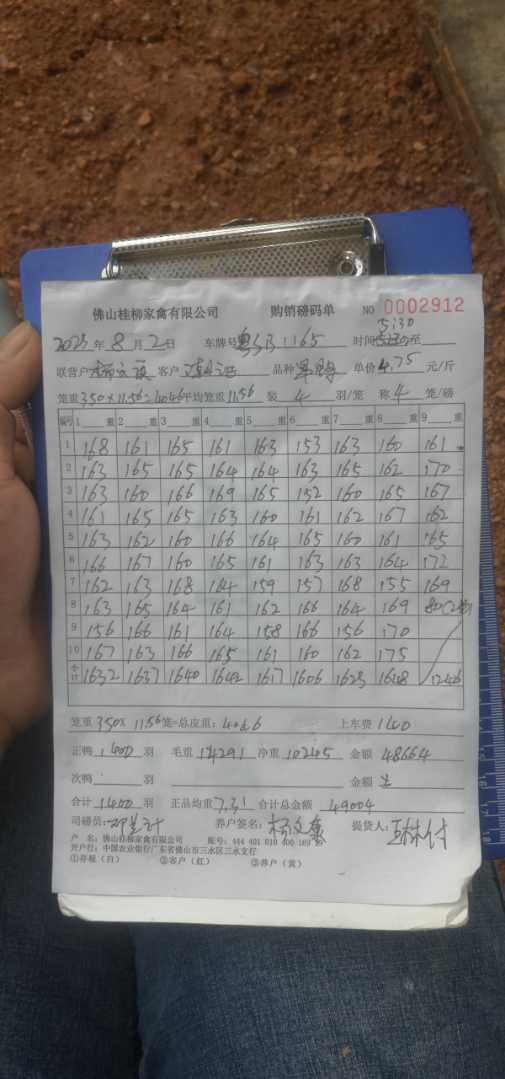 佛山桂柳家禽有限公司 购销磅码单 NO 0002912
5:30
2025 年 8 月 2 日 车牌号 1165 时间 至
联营户 客户 品种 单价 4.75 元/斤
笼重 350×11.56=4046 平均笼重 11.56 装 4 羽/笼 称 4 笼/磅
编号 1 重 2 重 3 重 4 重 5 重 6 重 7 重 8 重 9 重
1 168 161 165 161 163 153 163 160 161
2 163 165 165 164 164 163 165 162 170
3 163 160 166 169 165 152 160 165 167
4 161 165 165 163 160 161 162 167 162
5 163 162 160 166 164 165 160 161 165
6 166 167 160 165 161 163 163 164 172
7 162 163 168 164 159 157 168 155 169
8 163 165 164 161 162 166 164 169 80
9 156 166 161 164 158 166 156 170
10 167 163 166 165 161 160 162 175
合计 1632 1637 1640 1642 1617 1606 1623 1648 1246
笼重 350× 11.56 笼=总皮重: 4046 上车费 1400
正鸭 1400 羽 毛重 14291 净重 10245 金额 48664
次鸭 羽 金额
合计 1400 羽 正品均重 7.31 合计总金额 49004
司磅员: 养户签名: 提货人:
户 名: 佛山桂柳家禽有限公司 账号: 444 401 010 400 169
开户行: 中国农业银行广东省佛山市三水区三水支行
①存根 (白) ②客户 (红) ③养户 (黄)